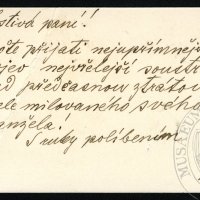 stivá paní!
přijati nejupřímněj
jev nejvřelejší soustr
d předčasnou ztrátou
ele milovaného svého
anžela!
S ruky políbením
MUSEUM